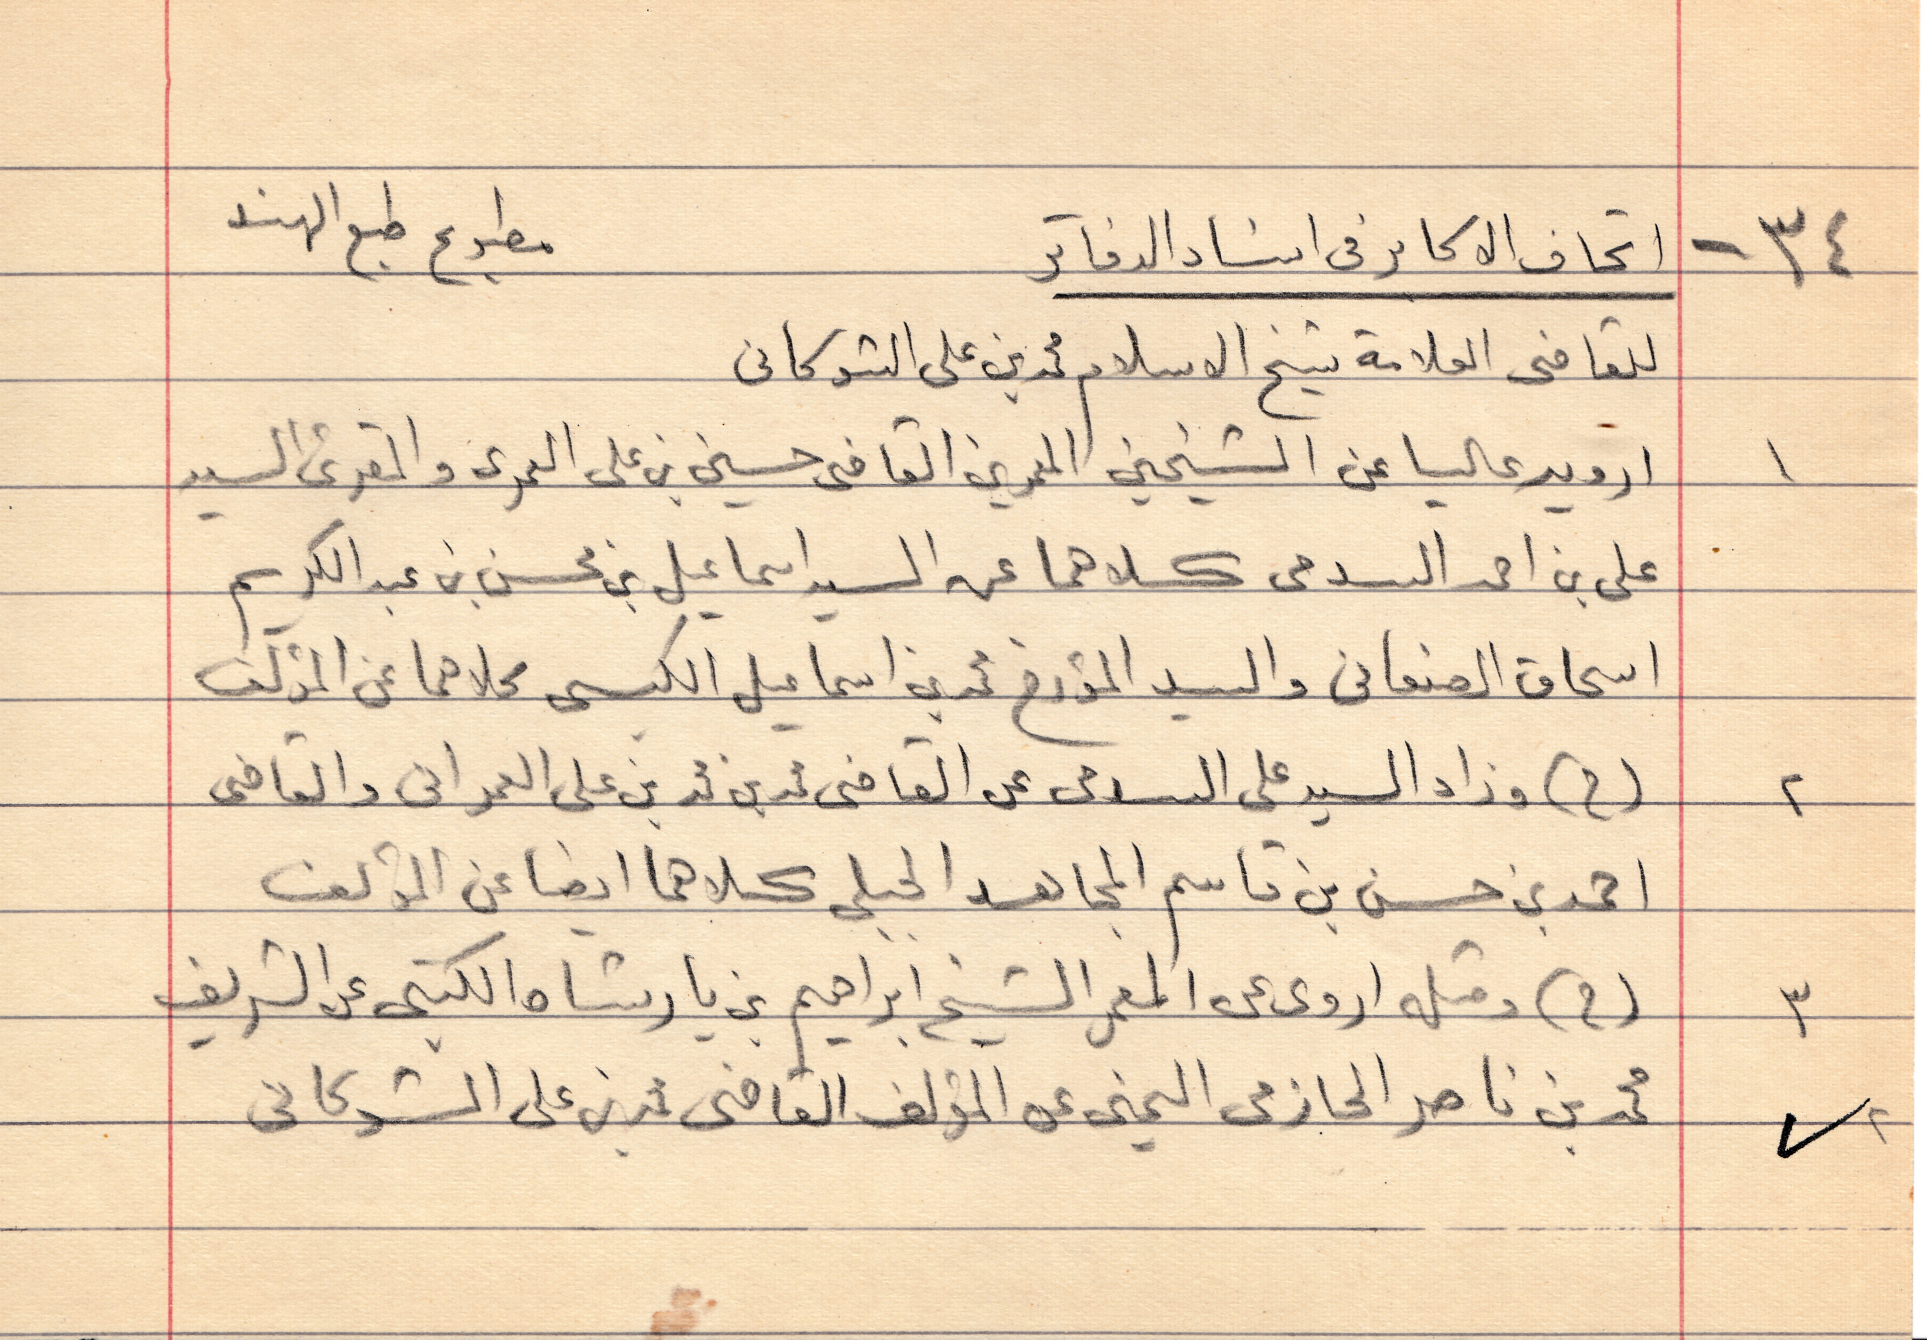 ٣٤ - اتحاف الاكابر فى اسناد الدفاتر مطبوع طبع الهند
للقاضى العلامة شيخ الاسلام محمد بن على الشوكانى
١ ارويه عاليا عن الشيخين المعمرين القاضى حسين بن على العمرى والمقرئ السيد
على بن احمد السدمى كلاهما عن السيد اسماعيل بن محسن بن عبد الكريم
اسحاق الصنعانى والسيد المؤرخ محمد بن اسماعيل الكبسى كلاهما عن المؤلف
٢ (ح) وزاد السيد على السدمى عن القاضى محمد بن محمد بن على العمرانى والقاضى
احمد بن حسن بن قاسم المجاهد الجبلى كلاهما ايضا عن المؤلف
٣ (ح) ومثله اروى عن المعمر الشيخ ابراهيم بن يارشاه الكتبى عن الشريف
محمد بن ناصر الحازمى اليمنى عن المؤلف القاضى محمد بن على الشوكانى
٢